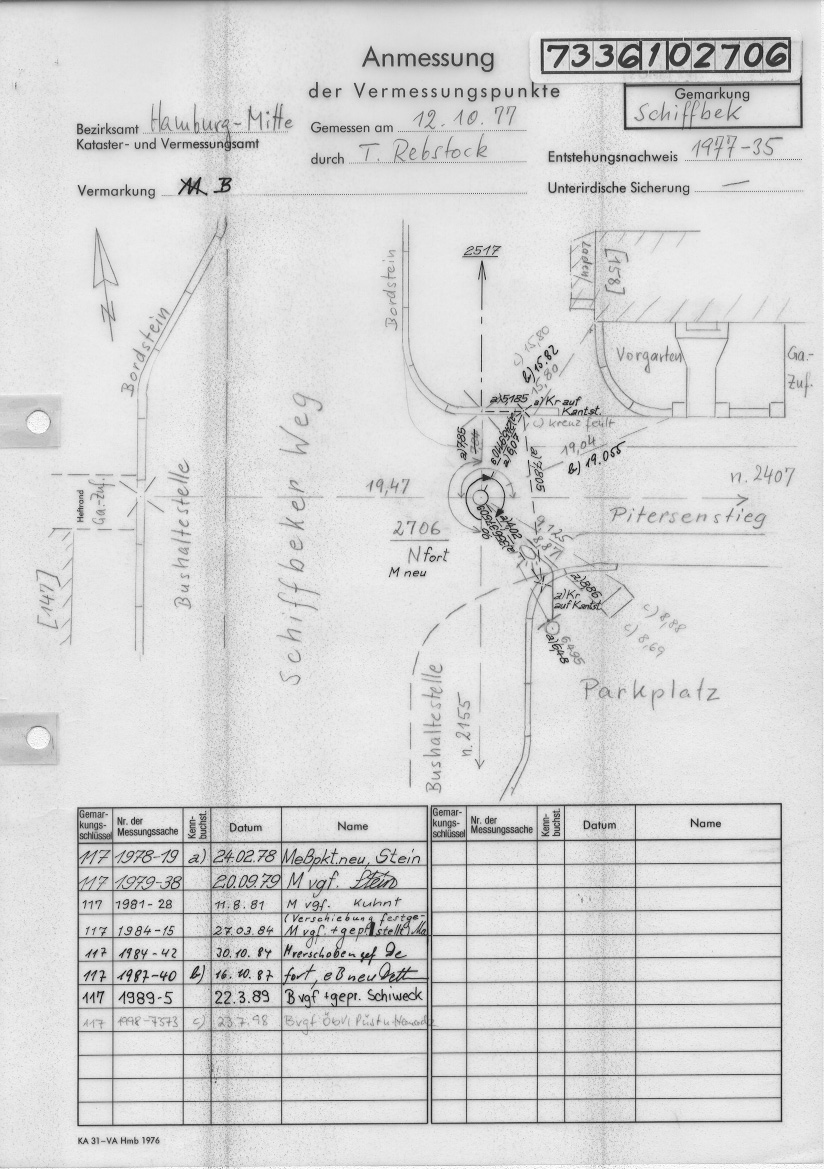 Anmessung
der Vermessungspunkte
7336102706
Gemarkung
Schiffbek
Bezirksamt Hamburg-Mitte
Kataster- und Vermessungsamt
Gemessen am 12.10.77
durch T. Rebstock
Entstehungsnachweis 1977-35
Vermarkung M B
Unterirdische Sicherung —
N
Bordstein
Bordstein
2517
Laden
[158]
c) 15,80
b) 15.82
15,80
Vorgarten
Ga.-
Zuf.
a) 5,185
a) Kr auf
Kantst.
c) kreuz fehlt
a) 7.85
a) 7.805
19,04
b) 19.055
Schiffbeker Weg
Bushaltestelle
Heltrand
Ga.-Zuf.
[147]
19,47
n. 2407
Pitersenstieg
2706
N fort
M neu
a) 4,02
9,125
8,87
a) 8,86
a) Kr
auf Kantst.
c) 8,88
c) 8,69
6,495
a) 6,48
Parkplatz
Bushaltestelle
n. 2155
Gemar-
kungs-
schlüssel
Nr. der
Messungssache
Kenn-
buchst.
Datum
Name
Gemar-
kungs-
schlüssel
Nr. der
Messungssache
Kenn-
buchst.
Datum
Name
117 1978-19 a) 24.02.78 Meßpkt.neu, Stein
117 1979-38 20.09.79 M vgf. Stein
117 1981-28 11.8.81 M vgf. Kuhnt
(Verschiebung festge-
117 1984-15 27.03.84 M vgf. + gepr. stellt) Ma
117 1984-42 30.10.84 M verschoben vgf De
117 1987-40 b) 16.10.87 fort, eB neu
117 1989-5 22.3.89 B vgf + gepr. Schiweck
117 1998-7373 c) 23.7.98 B vgf ÖbVI
KA 31–VA Hmb 1976